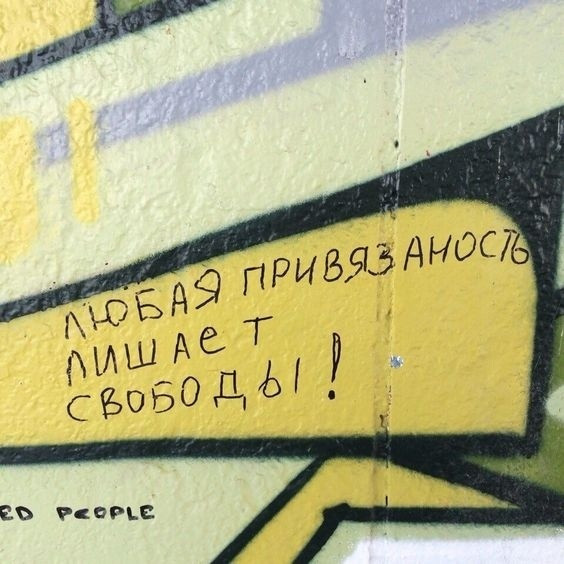 ЛЮБАЯ ПРИВЯЗАНОСТЬ
ЛИШАЕТ
СВОБОДЫ!
ED PEOPLE